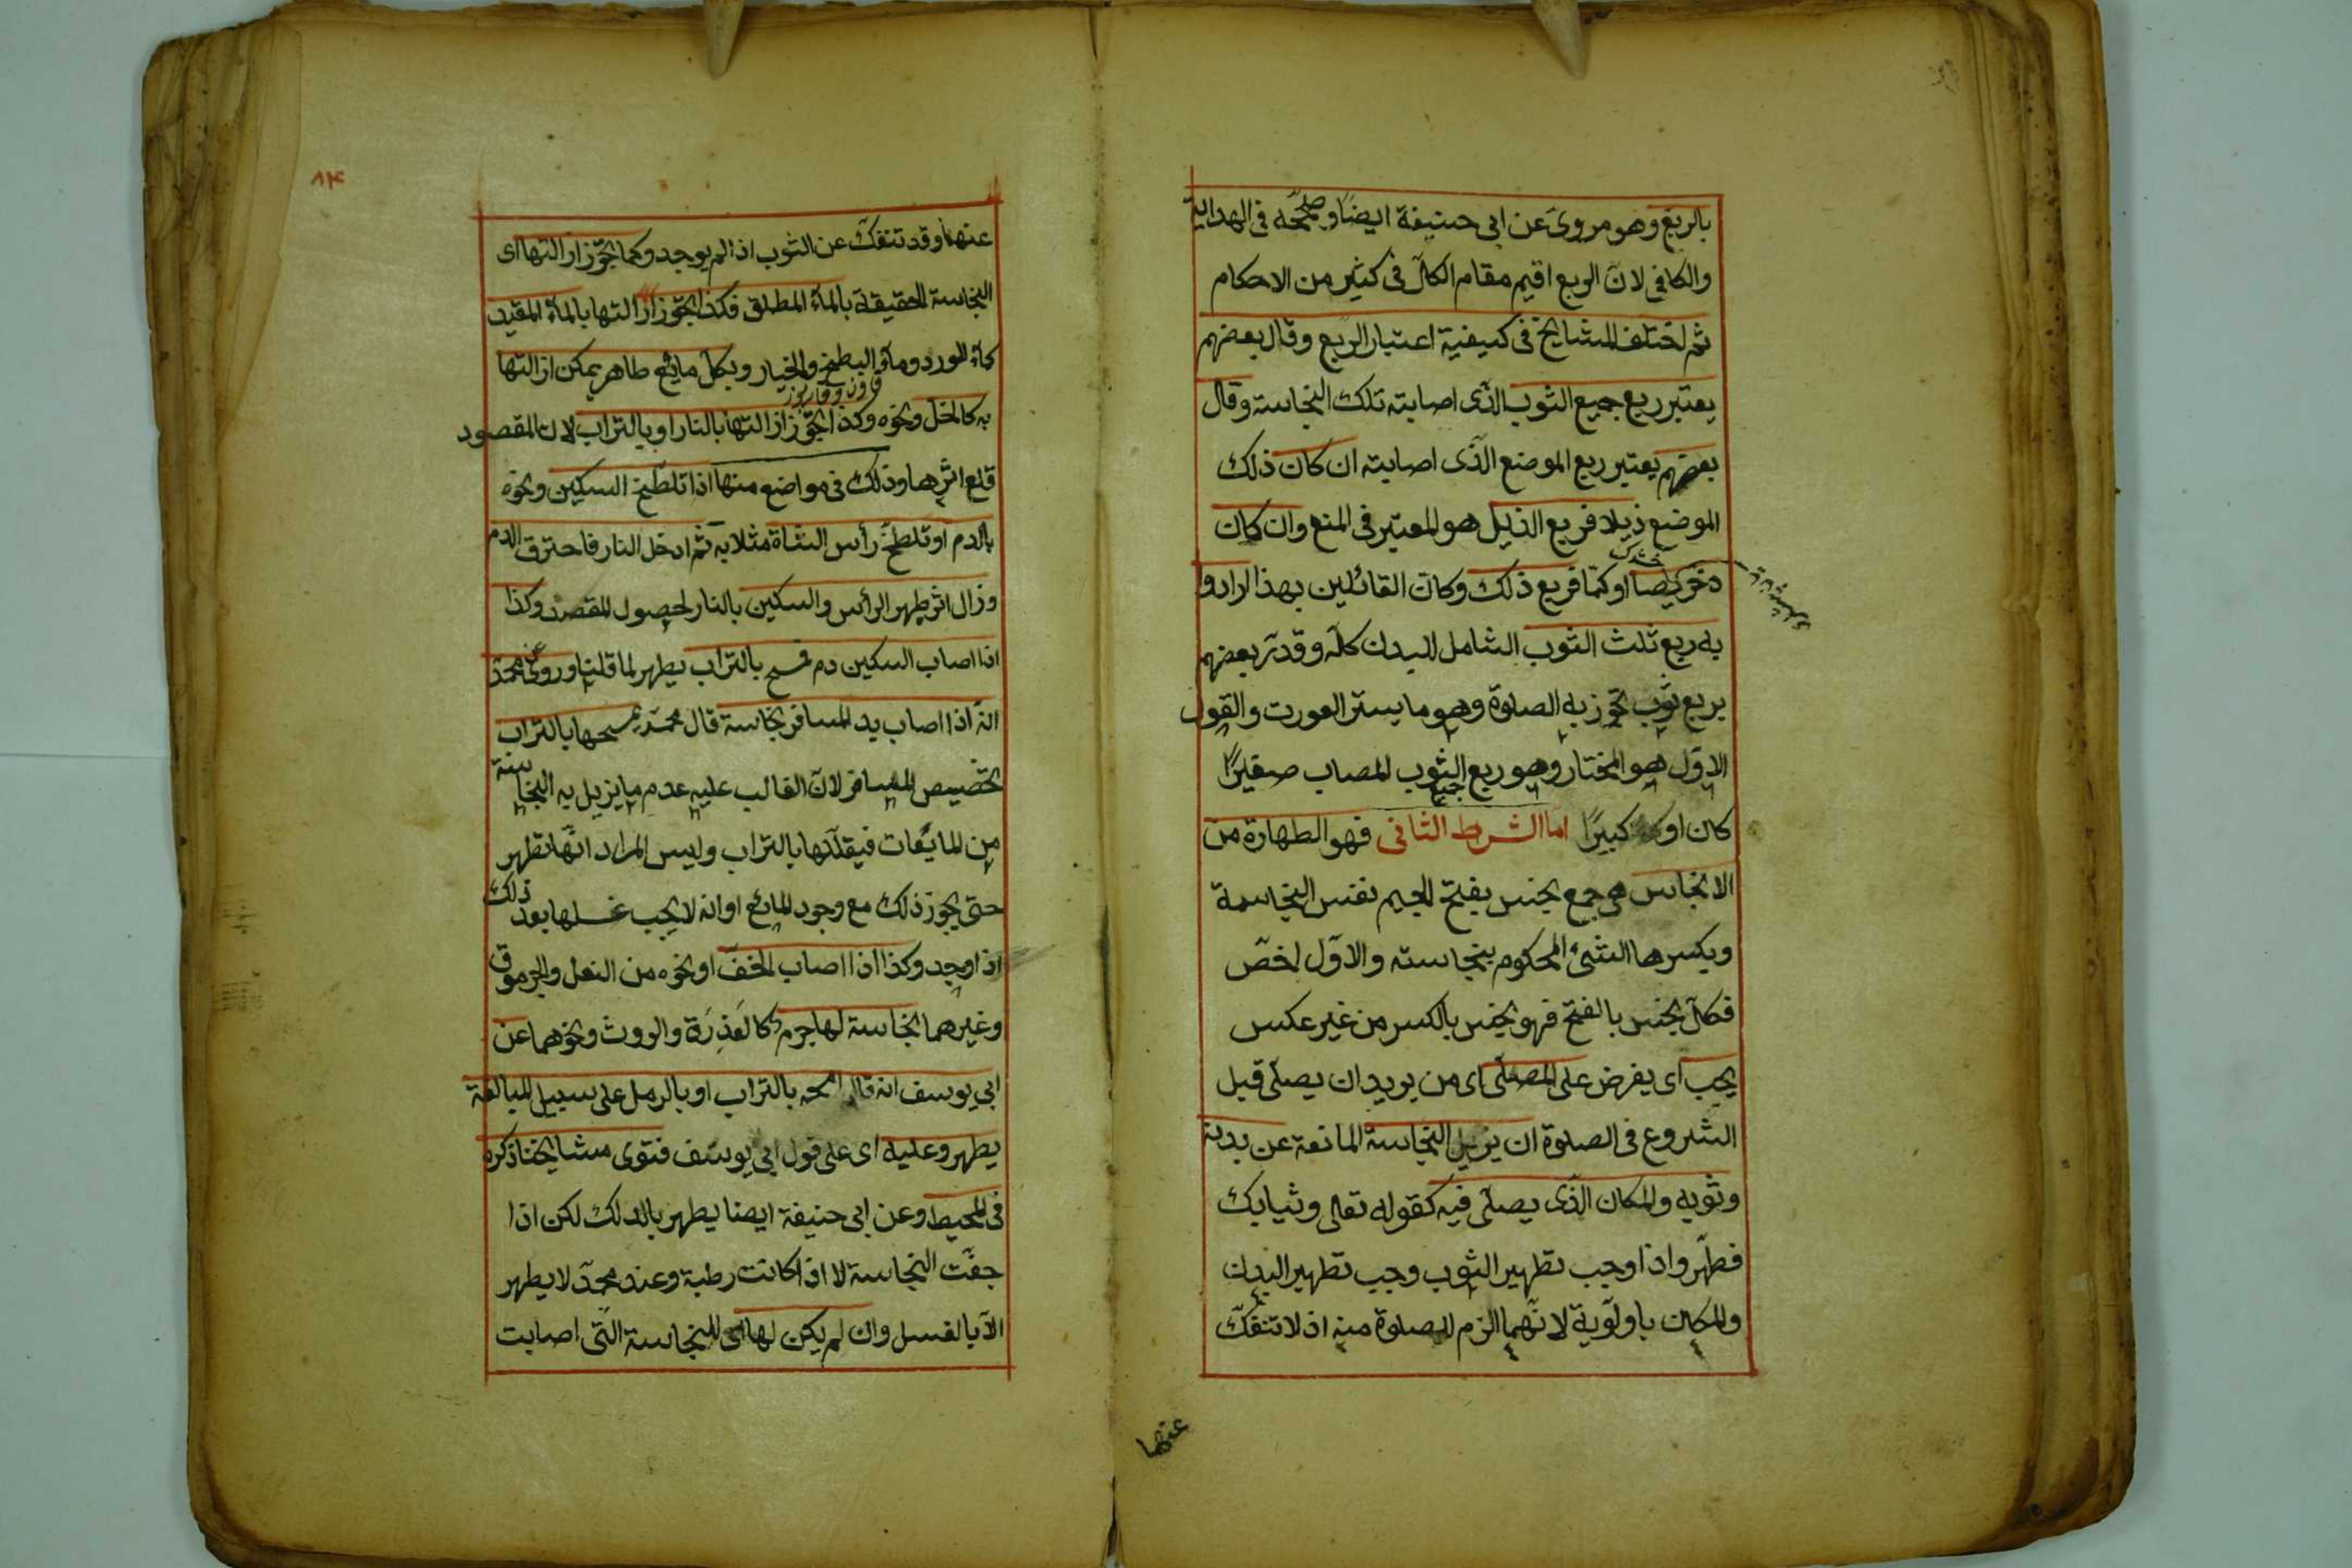 بالربع وهو مروى عن ابى حنيفة ايضا وصححه فى الهداية
والكافى لان الربع اقيم مقام الكل فى كثير من الاحكام
ثم اختلف المشايخ فى كيفية اعتبار الربع وقال بعضهم
يعتبر ربع جميع الثوب الذى اصابته تلك النجاسة وقال
بعضهم يعتبر ربع الموضع الذى اصابته ان كان ذلك
الموضع ذيلا فربع الذيل هو المعتبر فى المنع وان كان
دخريصا او كما فربع ذلك وكان القائلين بهذا ارادوا
به ربع ثلث الثوب الشامل للبدن كله وقدر بعضهم
بربع ثوب تجوز به الصلوة وهو ما يستر العورت والقول
الاول هو المختار وهو ربع الثوب المصاب صغيرا
جميع
كان او كبيرا اما الشرط الثانى فهو الطهارة من
الانجاس هى جمع نجس بفتح الجيم نفس النجاسة
وبكسرها الشئ المحكوم بنجاسته والاول اخص
فكل نجس بالفتح فهو نجس بالكسر من غير عكس
يجب اى يفرض على المصلى اى من يريد ان يصلى قبل
الشروع فى الصلوة ان يزيل النجاسة المانعة عن بدنه
وثوبه والمكان الذى يصلى فيه كقوله تعالى وثيابك
فطهر واذا وجب تطهير الثوب وجب تطهير البدن
والمكان باولوية لانهما الزم للصلوة منه اذ لا تنفك
عنهما
٨٤
عنهما وقد تنفك عن الثوب اذا لم يوجد وكما يجوز ازالتها اى
النجاسة الحقيقة بالماء المطلق فكذا يجوز ازالتها بالماء المقيد
كماء الورد وماء البطيخ والخيار وبكل مائع طاهر يمكن ازالتها
به كالخل ونحوه وكذا يجوز ازالتها بالنار او بالتراب لان المقصود
قلع اثرها وذلك فى مواضع منها اذا تلطخ السكين ونحوه
بالدم او تلطخ رأس الشاة مثلا به ثم ادخل النار فاحترق الدم
وزال اثره طهر الرأس والسكين بالنار لحصول المقصد وكذا
اذا اصاب السكين دم فمسح بالتراب يطهر لما قلنا وروى عن محمد
انه اذا اصاب يد المسافر نجاسة قال محمد يمسحها بالتراب
تخصيص المسافر لان الغالب عليه عدم ما يزيل به النجاسة
من المايعات فيقللها بالتراب وليس المراد انها تطهر
حتى يجوز ذلك مع وجود المائع او انه لا يجب غسلها بعد ذلك
اذا وجد وكذا اذا اصاب الخف او نحوه من النعل والجرموق
وغيرهما نجاسة لها جرم كالعذرة والروث ونحوهما عن
ابى يوسف انه قال امسحه بالتراب او بالرمل على سبيل المبالغة
يطهر وعليه اى على قول ابى يوسف فتوى مشايخنا ذكره
فى المحيط وعن ابى حنيفة ايضا يطهر بالدلك لكن اذا
جفت النجاسة لا اذا كانت رطبة وعند محمد لا يطهر
الا بالغسل وان لم يكن لها اى للنجاسة التى اصابت